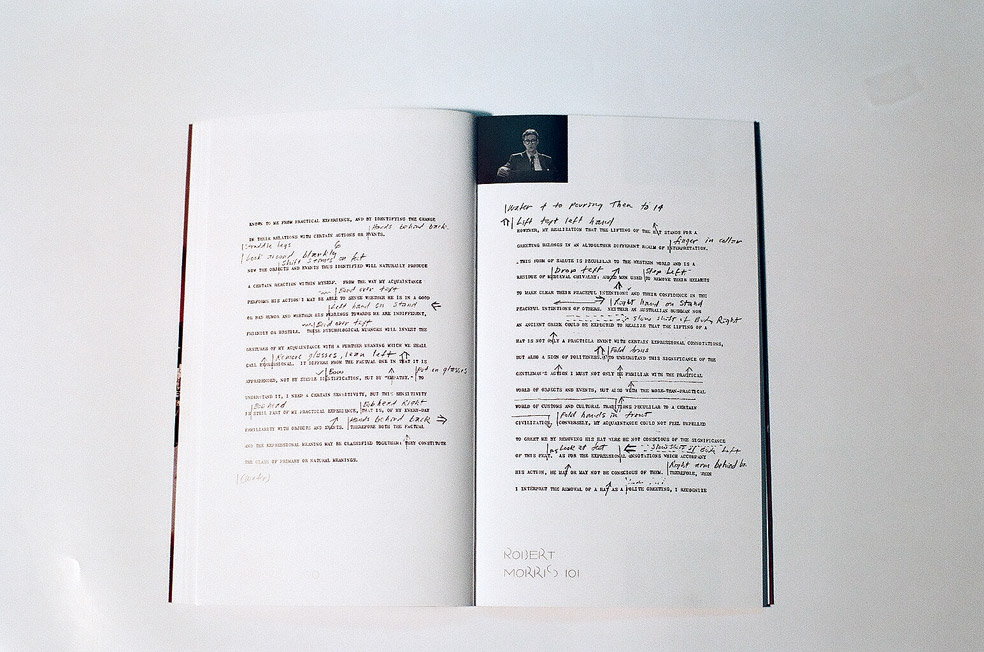 KNOWN TO ME FROM PRACTICAL EXPERIENCE, AND BY IDENTIFYING THE CHANGE
Hands behind back.
IN THEIR RELATIONS WITH CERTAIN ACTIONS OR EVENTS.
Straddle legs
Look around blankly
Shift stance on feet
NOW THE OBJECTS AND EVENTS THUS IDENTIFIED WILL NATURALLY PRODUCE
A CERTAIN REACTION WITHIN MYSELF. FROM THE WAY MY ACQUAINTANCE
Bend over text
PERFORMS HIS ACTION I MAY BE ABLE TO SENSE WHETHER HE IS IN A GOOD
Left hand on stand
OR BAD HUMOR AND WHETHER HIS FEELINGS TOWARDS ME ARE INDIFFERENT,
Bend over text
FRIENDLY OR HOSTILE. THESE PSYCHOLOGICAL NUANCES WILL INVEST THE
GESTURES OF MY ACQUAINTANCE WITH A FURTHER MEANING WHICH WE SHALL
Remove glasses, lean left
CALL EXPRESSIONAL. IT DIFFERS FROM THE FACTUAL ONE IN THAT IT IS
put on glasses
APPREHENDED, NOT BY SIMPLE IDENTIFICATION, BUT BY "EMPATHY." TO
UNDERSTAND IT, I NEED A CERTAIN SENSITIVITY, BUT THIS SENSITIVITY
Bob head Right
IS STILL PART OF MY PRACTICAL EXPERIENCE, THAT IS, OF MY EVERY-DAY
Hands behind back
FAMILIARITY WITH OBJECTS AND EVENTS. THEREFORE BOTH THE FACTUAL
AND THE EXPRESSIONAL MEANING MAY BE CLASSIFIED TOGETHER: THEY CONSTITUTE
THE CLASS OF PRIMARY OR NATURAL MEANINGS.
Water 4 to pouring Then to 14
Lift text left hand
HOWEVER, MY REALIZATION THAT THE LIFTING OF THE HAT STANDS FOR A
finger in collar
GREETING BELONGS IN AN ALTOGETHER DIFFERENT REALM OF INTERPRETATION.
THIS FORM OF SALUTE IS PECULIAR TO THE WESTERN WORLD AND IS A
Drop text
Step left
RESIDUE OF MEDIEVAL CHIVALRY: ARMED MEN USED TO REMOVE THEIR HELMETS
TO MAKE CLEAR THEIR PEACEFUL INTENTIONS AND THEIR CONFIDENCE IN THE
Right hand on Stand
PEACEFUL INTENTIONS OF OTHERS. NEITHER AN AUSTRALIAN BUSHMAN NOR
slow shift of Body Right
AN ANCIENT GREEK COULD BE EXPECTED TO REALIZE THAT THE LIFTING OF A
HAT IS NOT ONLY A PRACTICAL EVENT WITH CERTAIN EXPRESSIONAL CONNOTATIONS,
Fold arms
BUT ALSO A SIGN OF POLITENESS. TO UNDERSTAND THIS SIGNIFICANCE OF THE
GENTLEMAN'S ACTION I MUST NOT ONLY BE FAMILIAR WITH THE PRACTICAL
WORLD OF OBJECTS AND EVENTS, BUT ALSO WITH THE MORE-THAN-PRACTICAL
WORLD OF CUSTOMS AND CULTURAL TRADITIONS PECULIAR TO A CERTAIN
Fold hands in front
CIVILIZATION. CONVERSELY, MY ACQUAINTANCE COULD NOT FEEL IMPELLED
TO GREET ME BY REMOVING HIS HAT WERE HE NOT CONSCIOUS OF THE SIGNIFICANCE
Look at feet
Left
OF THIS FEAT. AS FOR THE EXPRESSIONAL CONNOTATIONS WHICH ACCOMPANY
Right arm behind b.
HIS ACTION, HE MAY OR MAY NOT BE CONSCIOUS OF THEM. THEREFORE, WHEN
I INTERPRET THE REMOVAL OF A HAT AS A POLITE GREETING, I RECOGNIZE
ROBERT
MORRIS 101